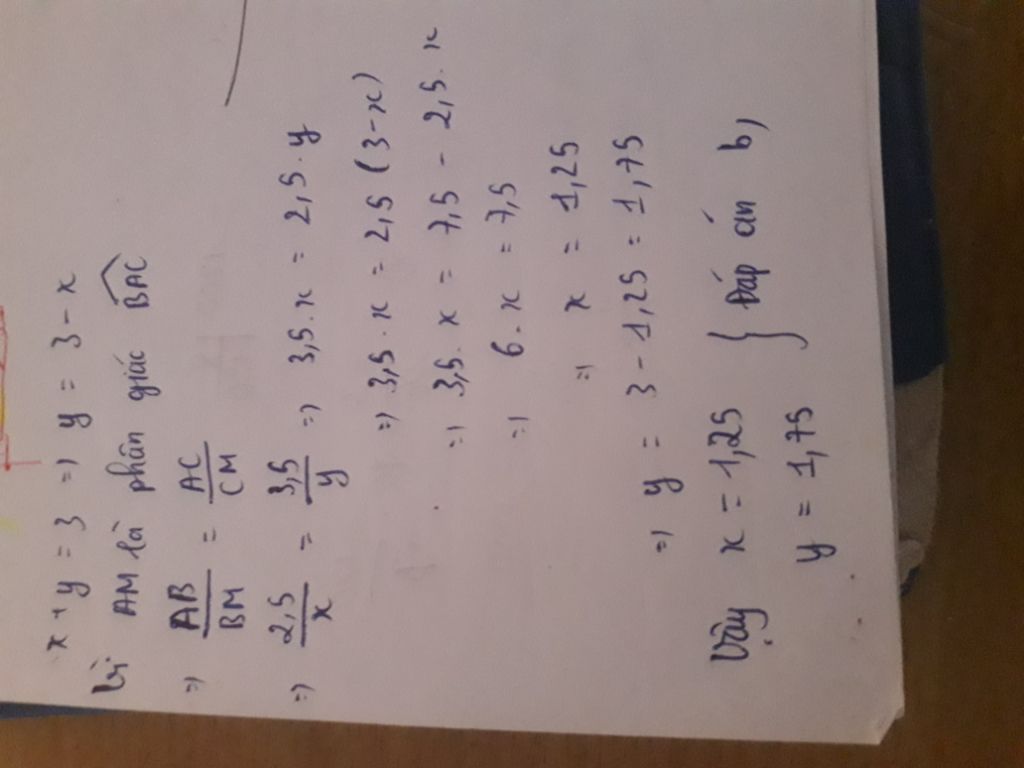 x + y = 3 => y = 3 - x
Vì AM là phân giác BAC
=> AB/BM = AC/CM
=> 2,5/x = 3,5/y => 3,5 . x = 2,5 . y
=> 3,5 . x = 2,5 (3 - x)
=> 3,5 . x = 7,5 - 2,5 . x
=> 6 . x = 7,5
=> x = 1,25
=> y = 3 - 1,25 = 1,75
Vậy x = 1,25 } Đáp án b,
y = 1,75